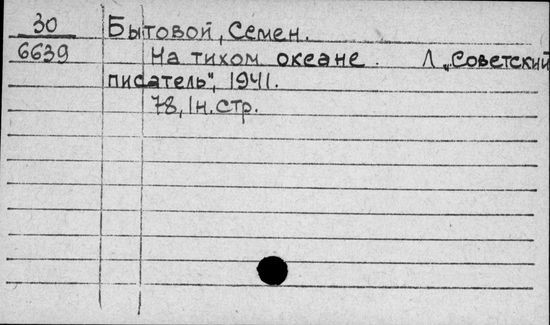 30 Бытовой, Семен.
6639 На тихом океане. Л „Советский
писатель", 1941.
78, 1н. стр.